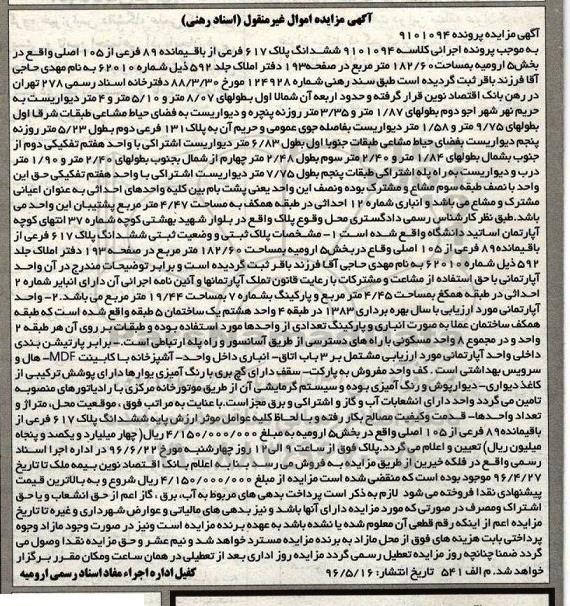 آگهی مزایده اموال غیرمنقول (اسناد رهنی)
آگهی مزایده پرونده ۹۱۰۱۰۹۴
به موجب پرونده اجرائی کلاسه ۹۱۰۱۰۹۴ ششدانگ پلاک ۶۱۷ فرعی از باقیمانده ۸۹ فرعی از ۱۰۵ اصلی واقع در
بخش۵ ارومیه بمساحت ۱۸۲/۶۰ متر مربع در صفحه ۱۹۳ دفتر املاک جلد ۵۹۲ ذیل شماره ۶۲۰۱۰ به نام مهدی حاجی
آقا فرزند باقر ثبت گردیده است طبق سند رهنی شماره ۱۲۴۹۲۸ مورخ ۸۸/۳/۳۰ دفترخانه اسناد رسمی ۲۷۸ تهران
در رهن بانک اقتصاد نوین قرار گرفته و حدود اربعه آن شمالا اول بطولهای ۸/۰۷ متر و ۵/۱۰ متر و ۴ متر دیواریست به
حریم نهر شهر اجو دوم بطولهای ۱/۸۷ متر و ۳/۳۵ متر روزنه پنجره و دیواریست به فضای حیاط مشاعی طبقات شرقا اول
بطولهای ۹/۷۵ متر و ۱/۵۸ متر دیواریست بفاصله جوی عمومی و حریم آن به پلاک ۱۳۱ فرعی دوم بطول ۵/۲۳ متر روزنه
پنجم دیواریست بفضای حیاط مشاعی طبقات جنوبا اول بطول ۶/۸۳ متر دیواریست اشتراکی با واحد هفتم تفکیکی دوم از
جنوب بشمال بطولهای ۱/۸۴ متر و ۲/۴۰ متر سوم بطول ۲/۴۸ متر چهارم از شمال بجنوب بطولهای ۲/۴۰ متر و ۱/۹۰ متر
درب و دیواریست به راه پله اشتراکی طبقات پنجم بطول ۷/۷۵ متر دیواریست اشتراکی با واحد هفتم تفکیکی حق این
واحد با نصف طبقه سوم مشاع و مشترک بوده ونصف این واحد یعنی پشت بام بین کلیه واحدهای احداثی به عنوان اعیانی
مشترک و مشاع می باشد و انباری شماره ۱۲ احداثی در طبقه همکف به مساحت ۴/۴۷ متر مربع پشتیبان این واحد می
باشد.طبق نظر کارشناس رسمی دادگستری محل وقوع پلاک واقع در بلوار شهید بهشتی کوچه شماره ۳۷ انتهای کوچه
آپارتمان اساتید دانشگاه واقع شده است ۱- مشخصات پلاک ثبتی و وضعیت ثبتی ششدانگ پلاک ۶۱۷ فرعی از
باقیمانده ۸۹ فرعی از ۱۰۵ اصلی وقاع در بخش۵ ارومیه بمساحت ۱۸۲/۶۰ متر مربع در صفحه ۱۹۳ دفتر املاک جلد
۵۹۲ ذیل شماره ۶۲۰۱۰ به نام مهدی حاجی آقا فرزند باقر ثبت گردیده است و برابر توضیحات مندرج در آن واحد
آپارتمانی با حق استفاده از مشاعت و مشترکات با رعایت قانون تملک آپارتمانها و آئین نامه اجرائی آن دارای انبابر شماره ۲
احداثی در طبقه همکف بمساحت ۴/۴۵ متر مربع و پارکینگ بشماره ۷ بمساحت ۱۹/۴۴ متر مربع می باشد. ۲- واحد
آپارتمانی مورد ارزیابی با سال بهره برداری ۱۳۸۳ در طبقه ۴ واحد هشتم یک ساختمان ۵ طبقه واقع شده است که طبقه
همکف ساختمان عملا به صورت انباری و پارکینگ تعدادی از واحدها مورد استفاده بوده و طبقات بر روی آن هر طبقه ۲
واحد و در مجموع ۸ واحد مسکونی با راه های دسترسی از طریق آسانسور و راه پله ارتباطی است. - برابر پارتیشن بندی
داخلی واحد آپارتمانی مورد ارزیابی مشتمل بر ۳ باب اتاق- انباری داخل واحد- آشپزخانه با کابینت MDF- هال و
سرویس بهداشتی است. کف واحد مفروش به پارکت- سقف دارای گچ بری با رنگ آمیزی یوارها دارای پوشش ترکیبی از
کاغذ دیواری- دیوارپوش و رنگ آمیزی بوده و سیستم گرمایشی آن از طریق موتورخانه مرکزی با رادیاتورهای منصوبه
تامین می گردد واحد دارای انشعابات آب و گاز و اشتراکی و برق مجزاست.با عنایت به مراتب فوق، موقعیت محل، متراژ و
تعداد واحدها- قدمت وکیفیت مصالح بکار رفته و با لحاظ کلیه عوامل موثر ارزش پایه ششدانگ پلاک ۶۱۷ فرعی از
باقیمانده۸۹ فرعی از ۱۰۵ اصلی واقع در بخش۵ ارومیه به مبلغ ۴/۱۵۰/۰۰۰/۰۰۰ ریال( چهار میلیارد و یکصد و پنجاه
میلیون ریال) تعیین و اعلام می گردد.پلاک فوق از ساعت ۹ الی ۱۲ روز چهارشنبه مورخ ۹۶/۶/۲۲ در اداره اجرا اسناد
رسمی واقع در فلکه خیرین از طریق مزایده به فروش می رسد.بنا به اعلام بانک اقتصاد نوین بیمه ملک تا تاریخ
۹۶/۴/۲۷ موجود بوده است که منقضی شده است مزایده از مبلغ ۴/۱۵۰/۰۰۰/۰۰۰ ریال شروع و به بالاترین قیمت
پیشنهادی نقدا فروخته می شود لازم به ذکر است پرداخت بدهی های مربوط به آب، برق، گاز اعم از حق انشعاب و یا حق
اشتراک ومصرف در صورتی که مورد مزایده دارای آنها باشد و نیز بدهی های مالیاتی و عوارض شهرداری و غیره تا تاریخ
مزایده اعم از اینکه رقم قطعی آن معلوم شده یا نشده باشد به عهده برنده مزایده است ونیز در صورت وجود مازاد وجوه
پرداختی بابت هزینه های فوق از محل مازاد به برنده مزایده مسترد خواهد شد و نیم عشر و حق مزایده نقدا وصول می
گردد ضمنا چنانچه روز مزایده تعطیل رسمی گردد مزایده روز اداری بعد از تعطیلی در همان ساعت ومکان مقرر برگزار
خواهد شد.م الف ۵۴۱ تاریخ انتشار: ۹۶/۵/۱۶ کفیل اداره اجراء مفاد اسناد رسمی ارومیه